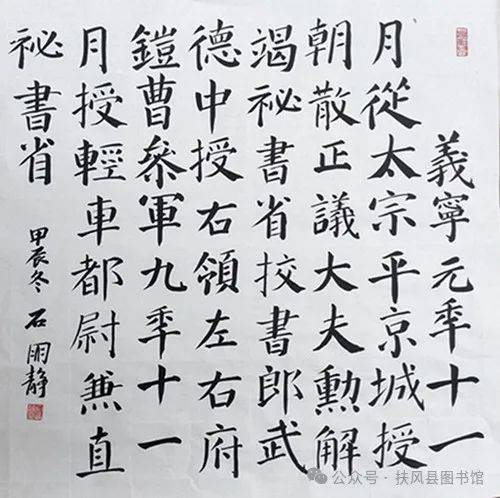 義寧元秊十一
月從太宗平京城授
朝散正議大夫勲解
竭祕書省挍書郎武
德中授右領左右府
鎧曹叅軍九秊十一
月授輕車都尉兼直
祕書省
甲辰冬 石明静
公众号 · 扶风县图书馆